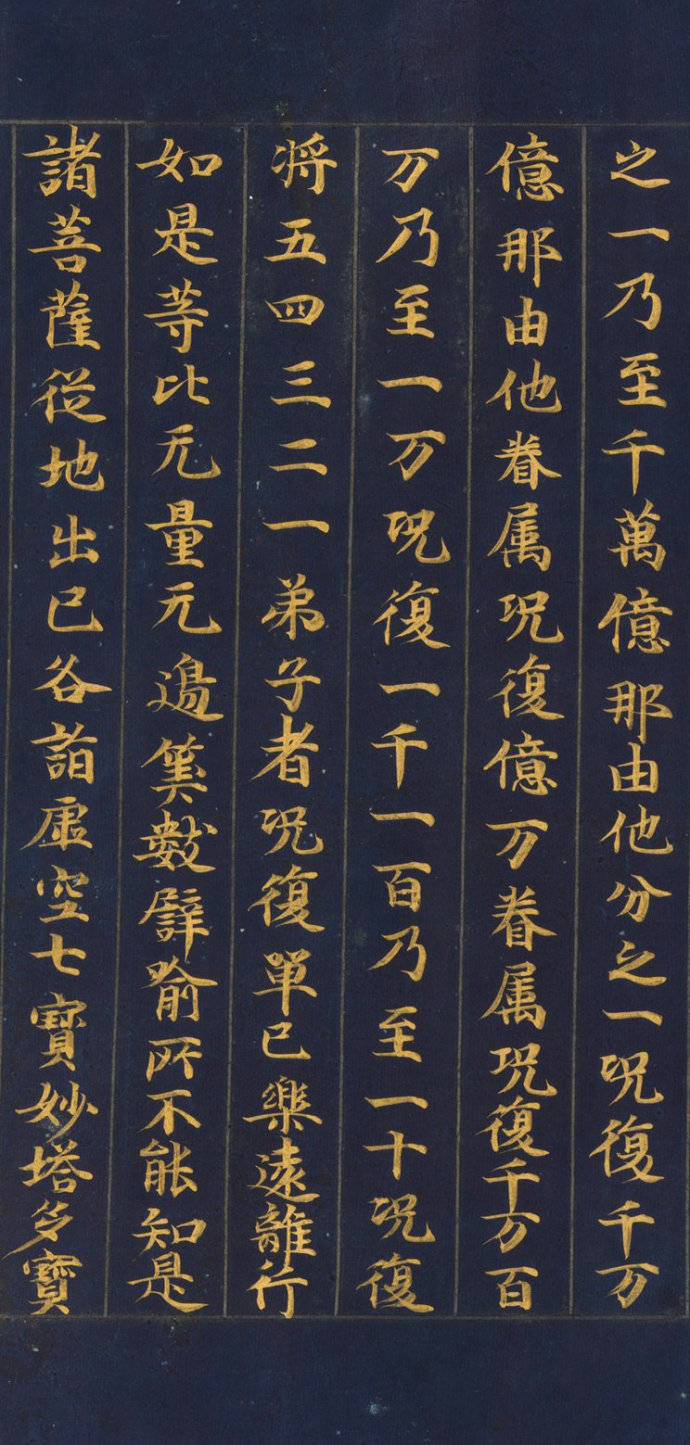 之一乃至千萬億那由他分之一况復千万
億那由他眷属况復億万眷属况復千万百
万乃至一万况復一千一百乃至一十况復
将五四三二一弟子者况復單己樂遠離行
如是等比无量无邊筭數譬喻所不能知是
諸菩薩従地出已各詣虚空七寶妙塔多寶